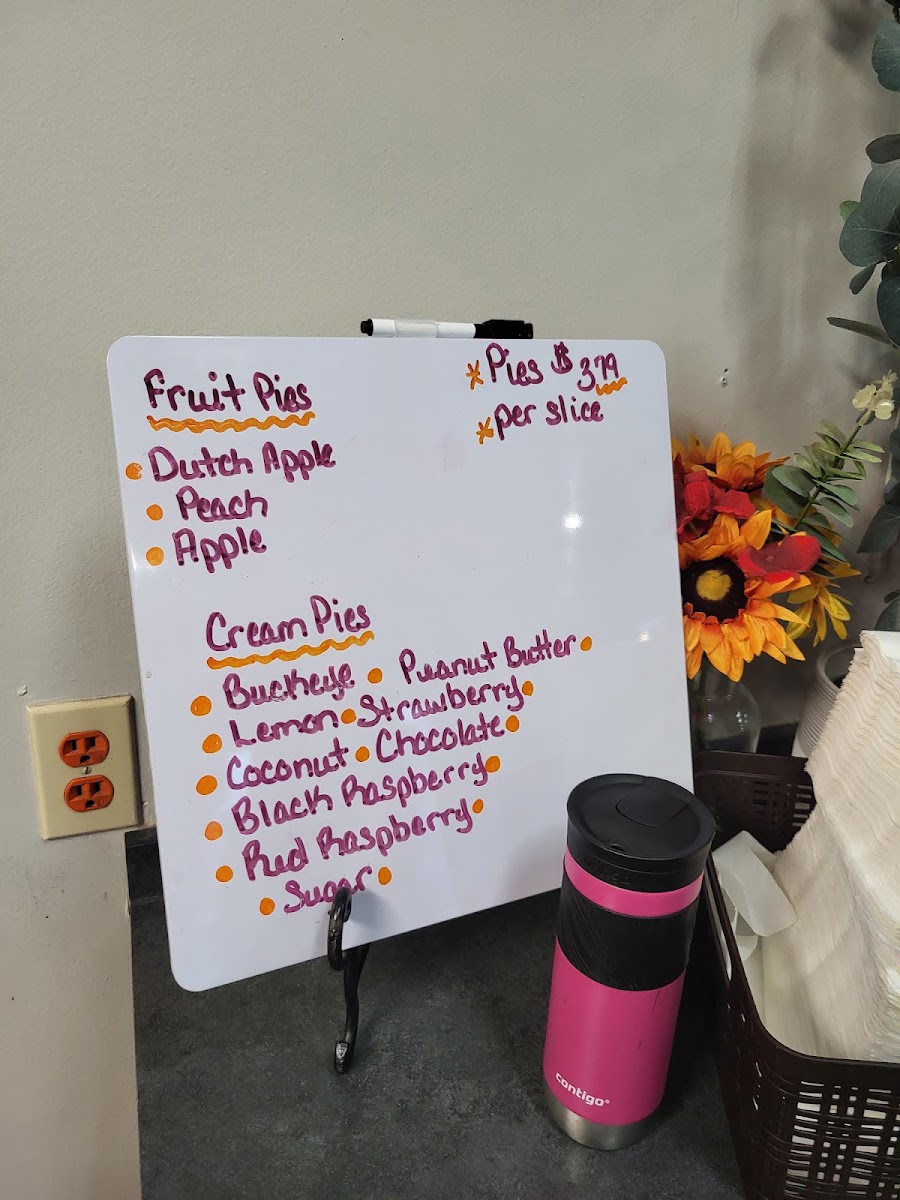 Fruit Pies
* Pies $ 3.79
* per slice
• Dutch Apple
• Peach
• Apple
Cream Pies
• Buckeye • Peanut Butter •
• Lemon • Strawberry •
• Coconut • Chocolate •
• Black Raspberry •
• Red Raspberry •
• Sugar •
contigo®